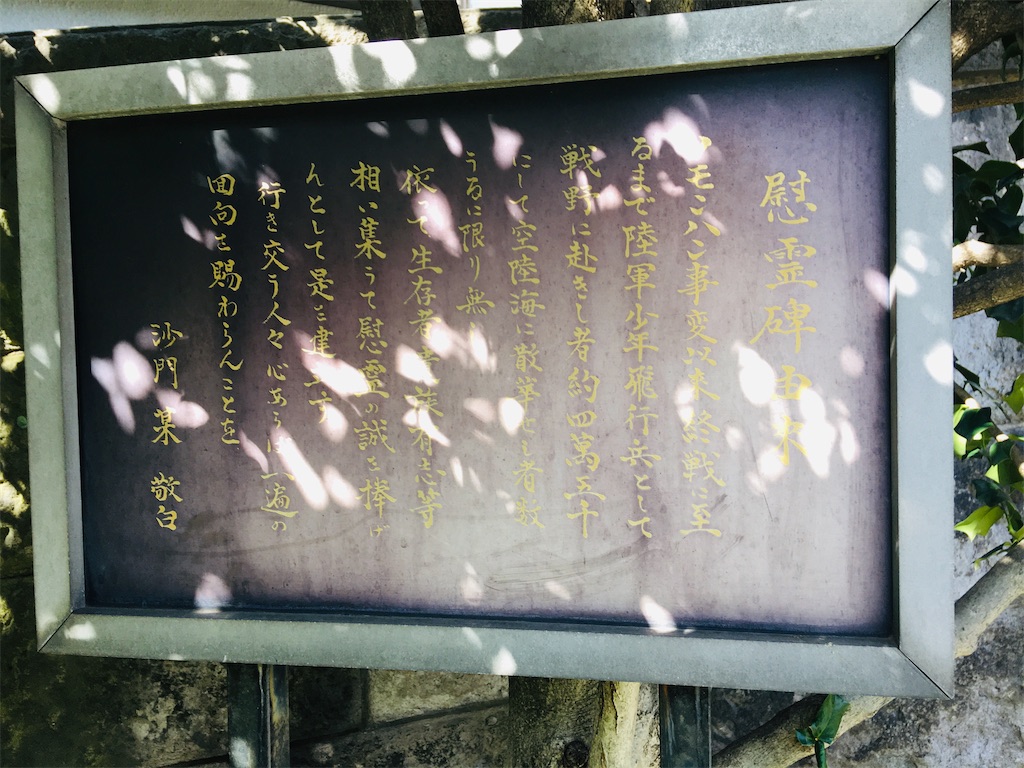 慰霊碑由来
ノモンハン事変以来終戦に至
るまで陸軍少年飛行兵として
戦野に赴きし者約四萬五千
にして空陸海に散華せし者数
うるに限り無
依って生存者遺族有志等
相い集うて慰霊の誠を捧げ
んとして是を建立す
行き交う人々心あらば一遍の
回向を賜わらんことを
沙門 某 敬白